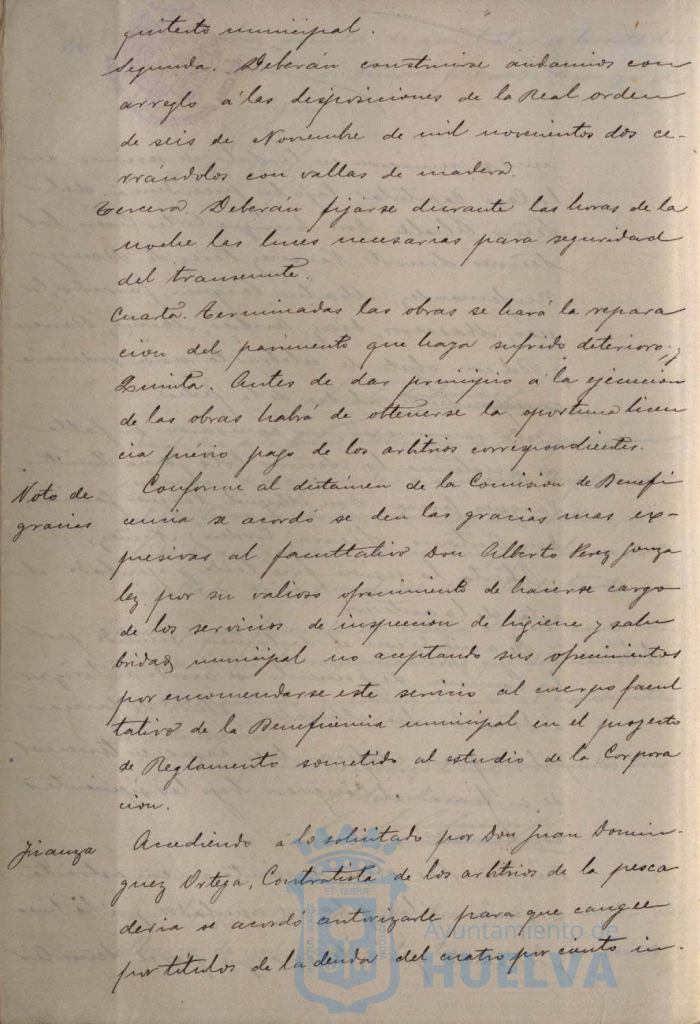 quitecto municipal.
Segunda. Deberán construirse andamios con
arreglo á las disposiciones de la Real orden
de seis de Noviembre de mil novecientos dos ce-
rrándolos con vallas de madera.
Tercera. Deberán fijarse durante las horas de la
noche las luces necesarias para seguridad
del transeunte.
Cuarta. Terminadas las obras se hará la repara
cion del pavimento que haya sufrido deterioro; y
Quinta. Antes de dar principio á la ejecucion
de las obras habrá de obtenerse la oportuna licen
cia prévio pago de los arbitrios correspondientes.
Voto de
gracias
Conforme al dictámen de la Comision de Benefi
cencia se acordó se den las gracias mas ex-
presivas al facultativo Don Alberto Perez Gonza
lez por su valioso ofrecimiento de hacerse cargo
de los servicios de inspeccion de higiene y salu
bridad municipal no aceptando sus ofrecimientos
por encomendarse este servicio al cuerpo facul
tativo de la Beneficencia municipal en el proyecto
de Reglamento sometido al estudio de la Corpora
cion.
Fianza
Accediendo á lo solicitado por Don Juan Domin-
guez Ortega, Contratista de los arbitrios de la pesca
deria se acordó autorizarle para que cangee
por titulos de la deuda del cuatro por ciento in-
Ayuntamiento de
HUELVA